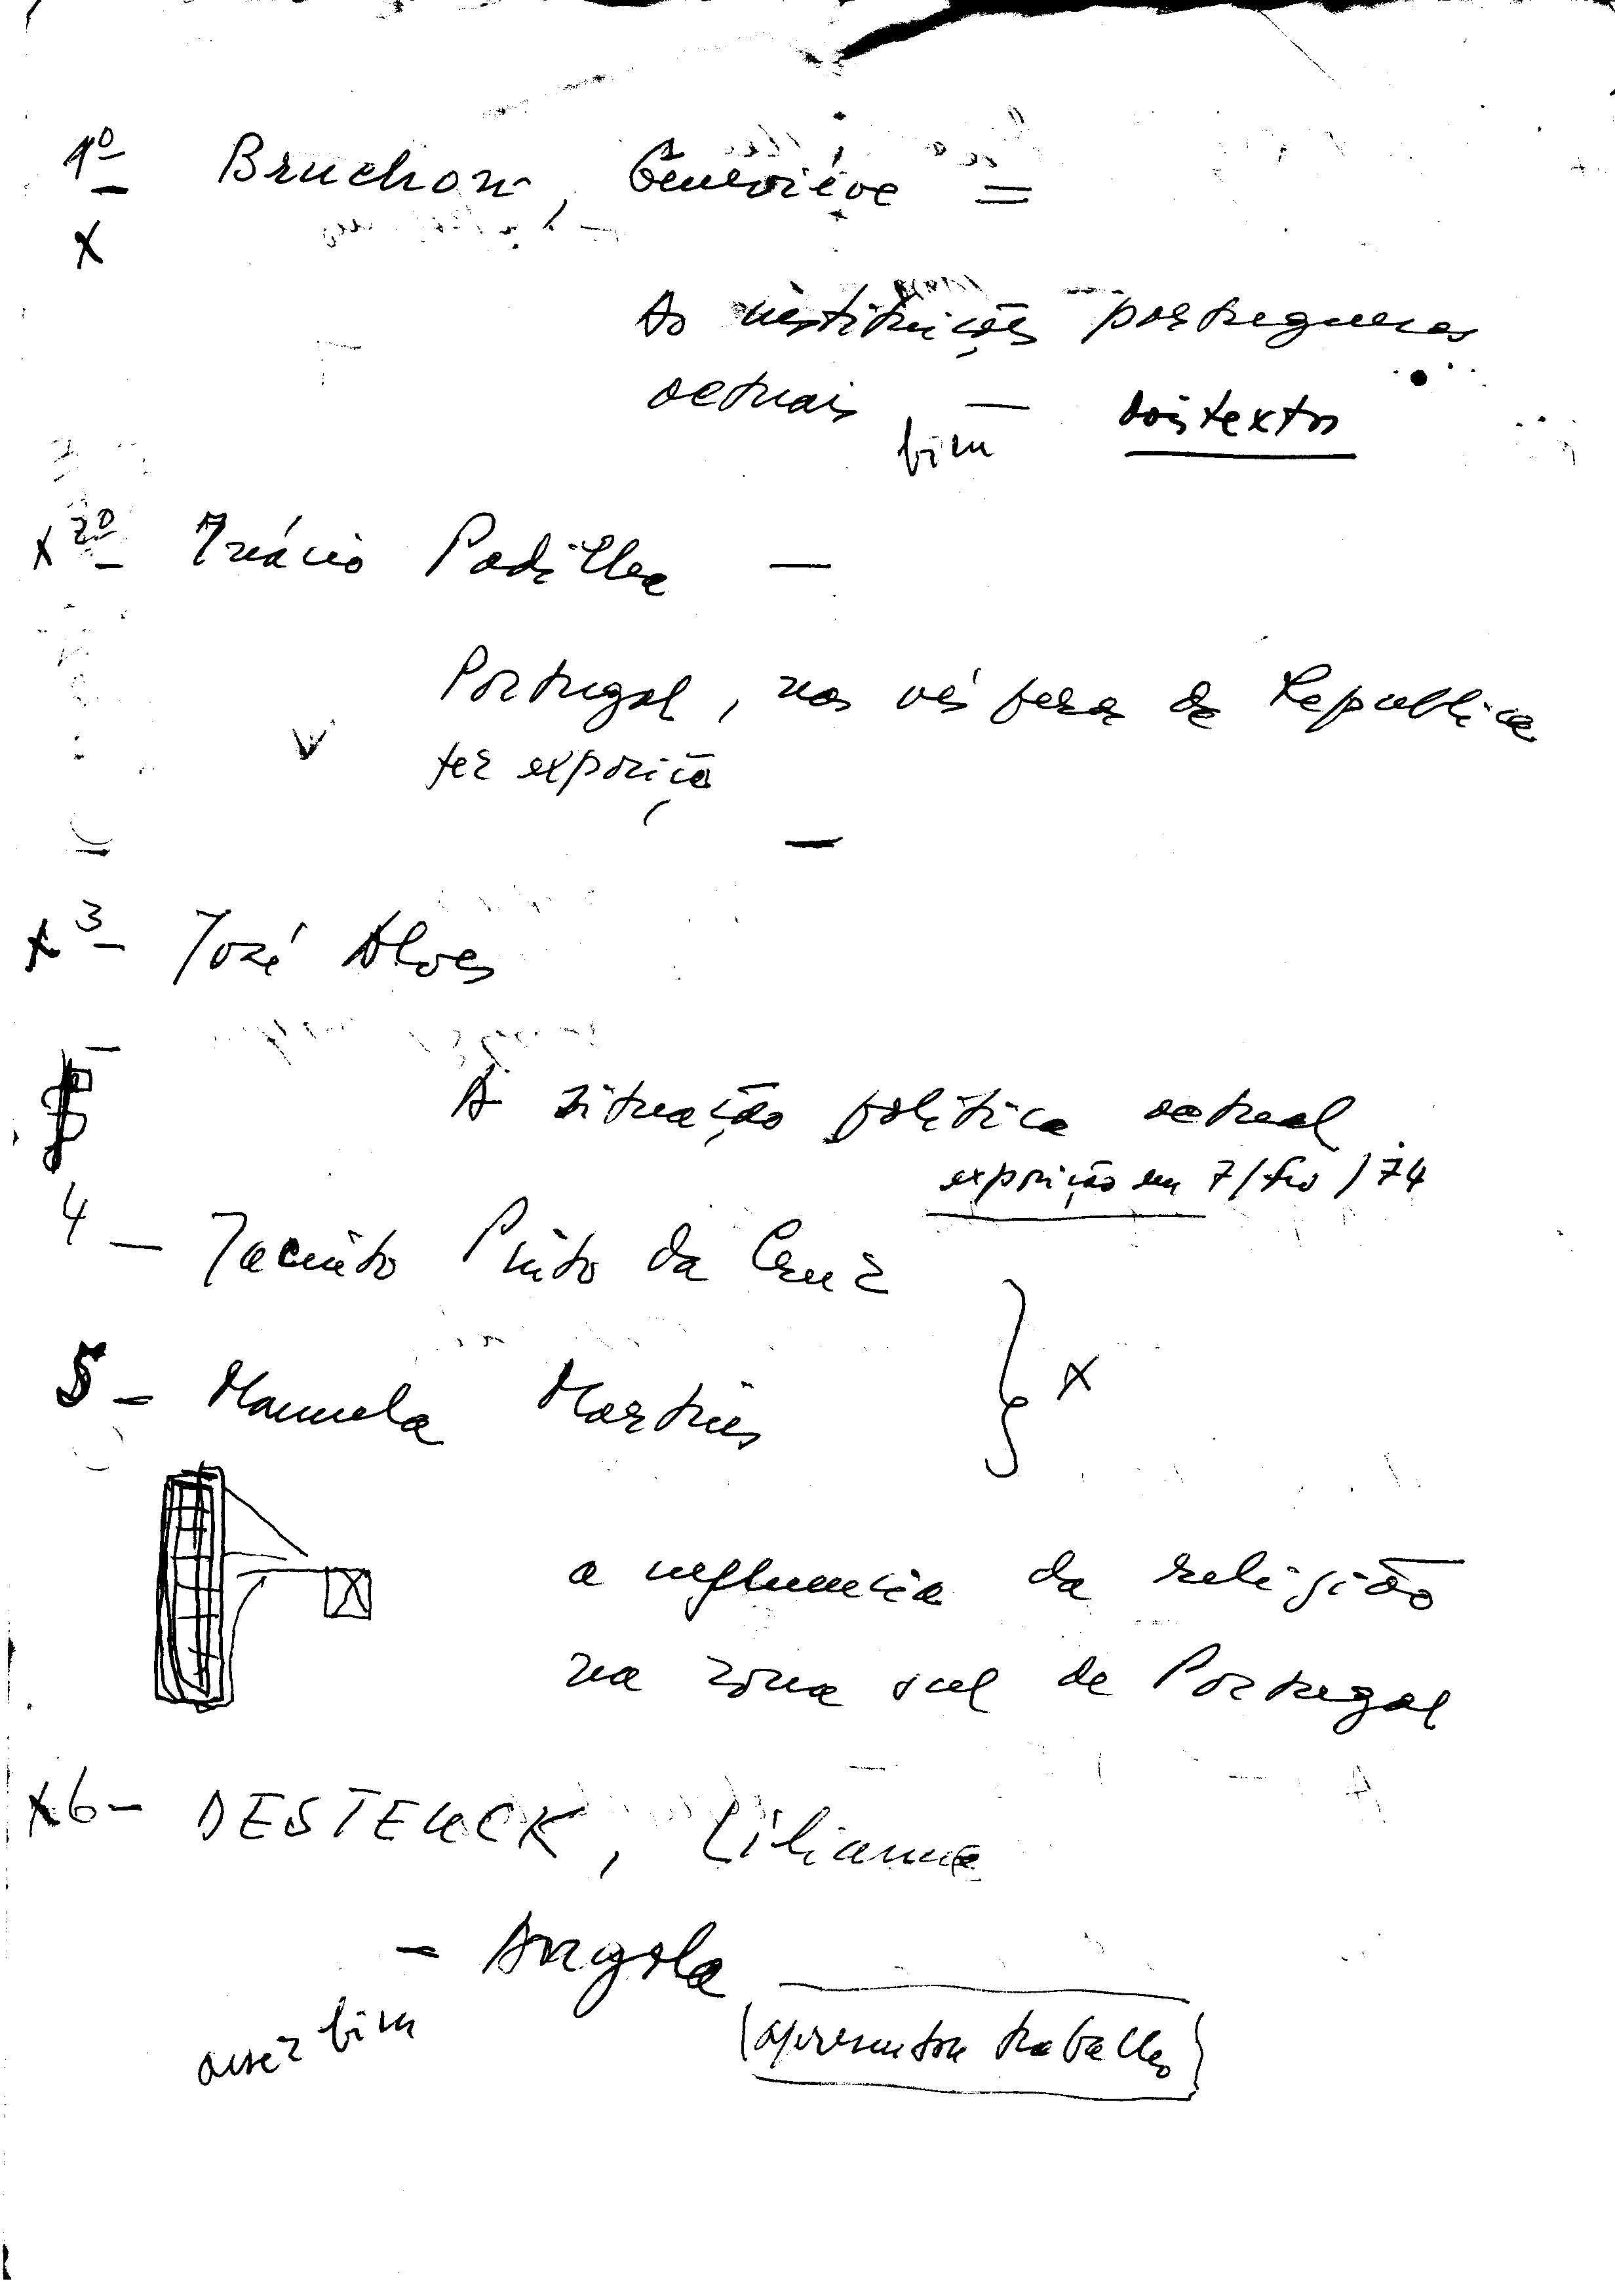 1º - Bruchon, Geneviève =
X
As instituições portuguesas
actuais —
bien dois textos
X 2º - Inácio Padilha —
Portugal, nas vésperas da Republica
V fez exposição
X 3 - José Alves
A situação política actual
exposição em 7/fev/74
4 - Jacinto Pinto da Cruz
5 - Manuela Martins } X
a influencia da religião
na zona sul de Portugal
X 6 - DESTERCK, Lilianne
- Angola
assez bien (apresentou trabalho)